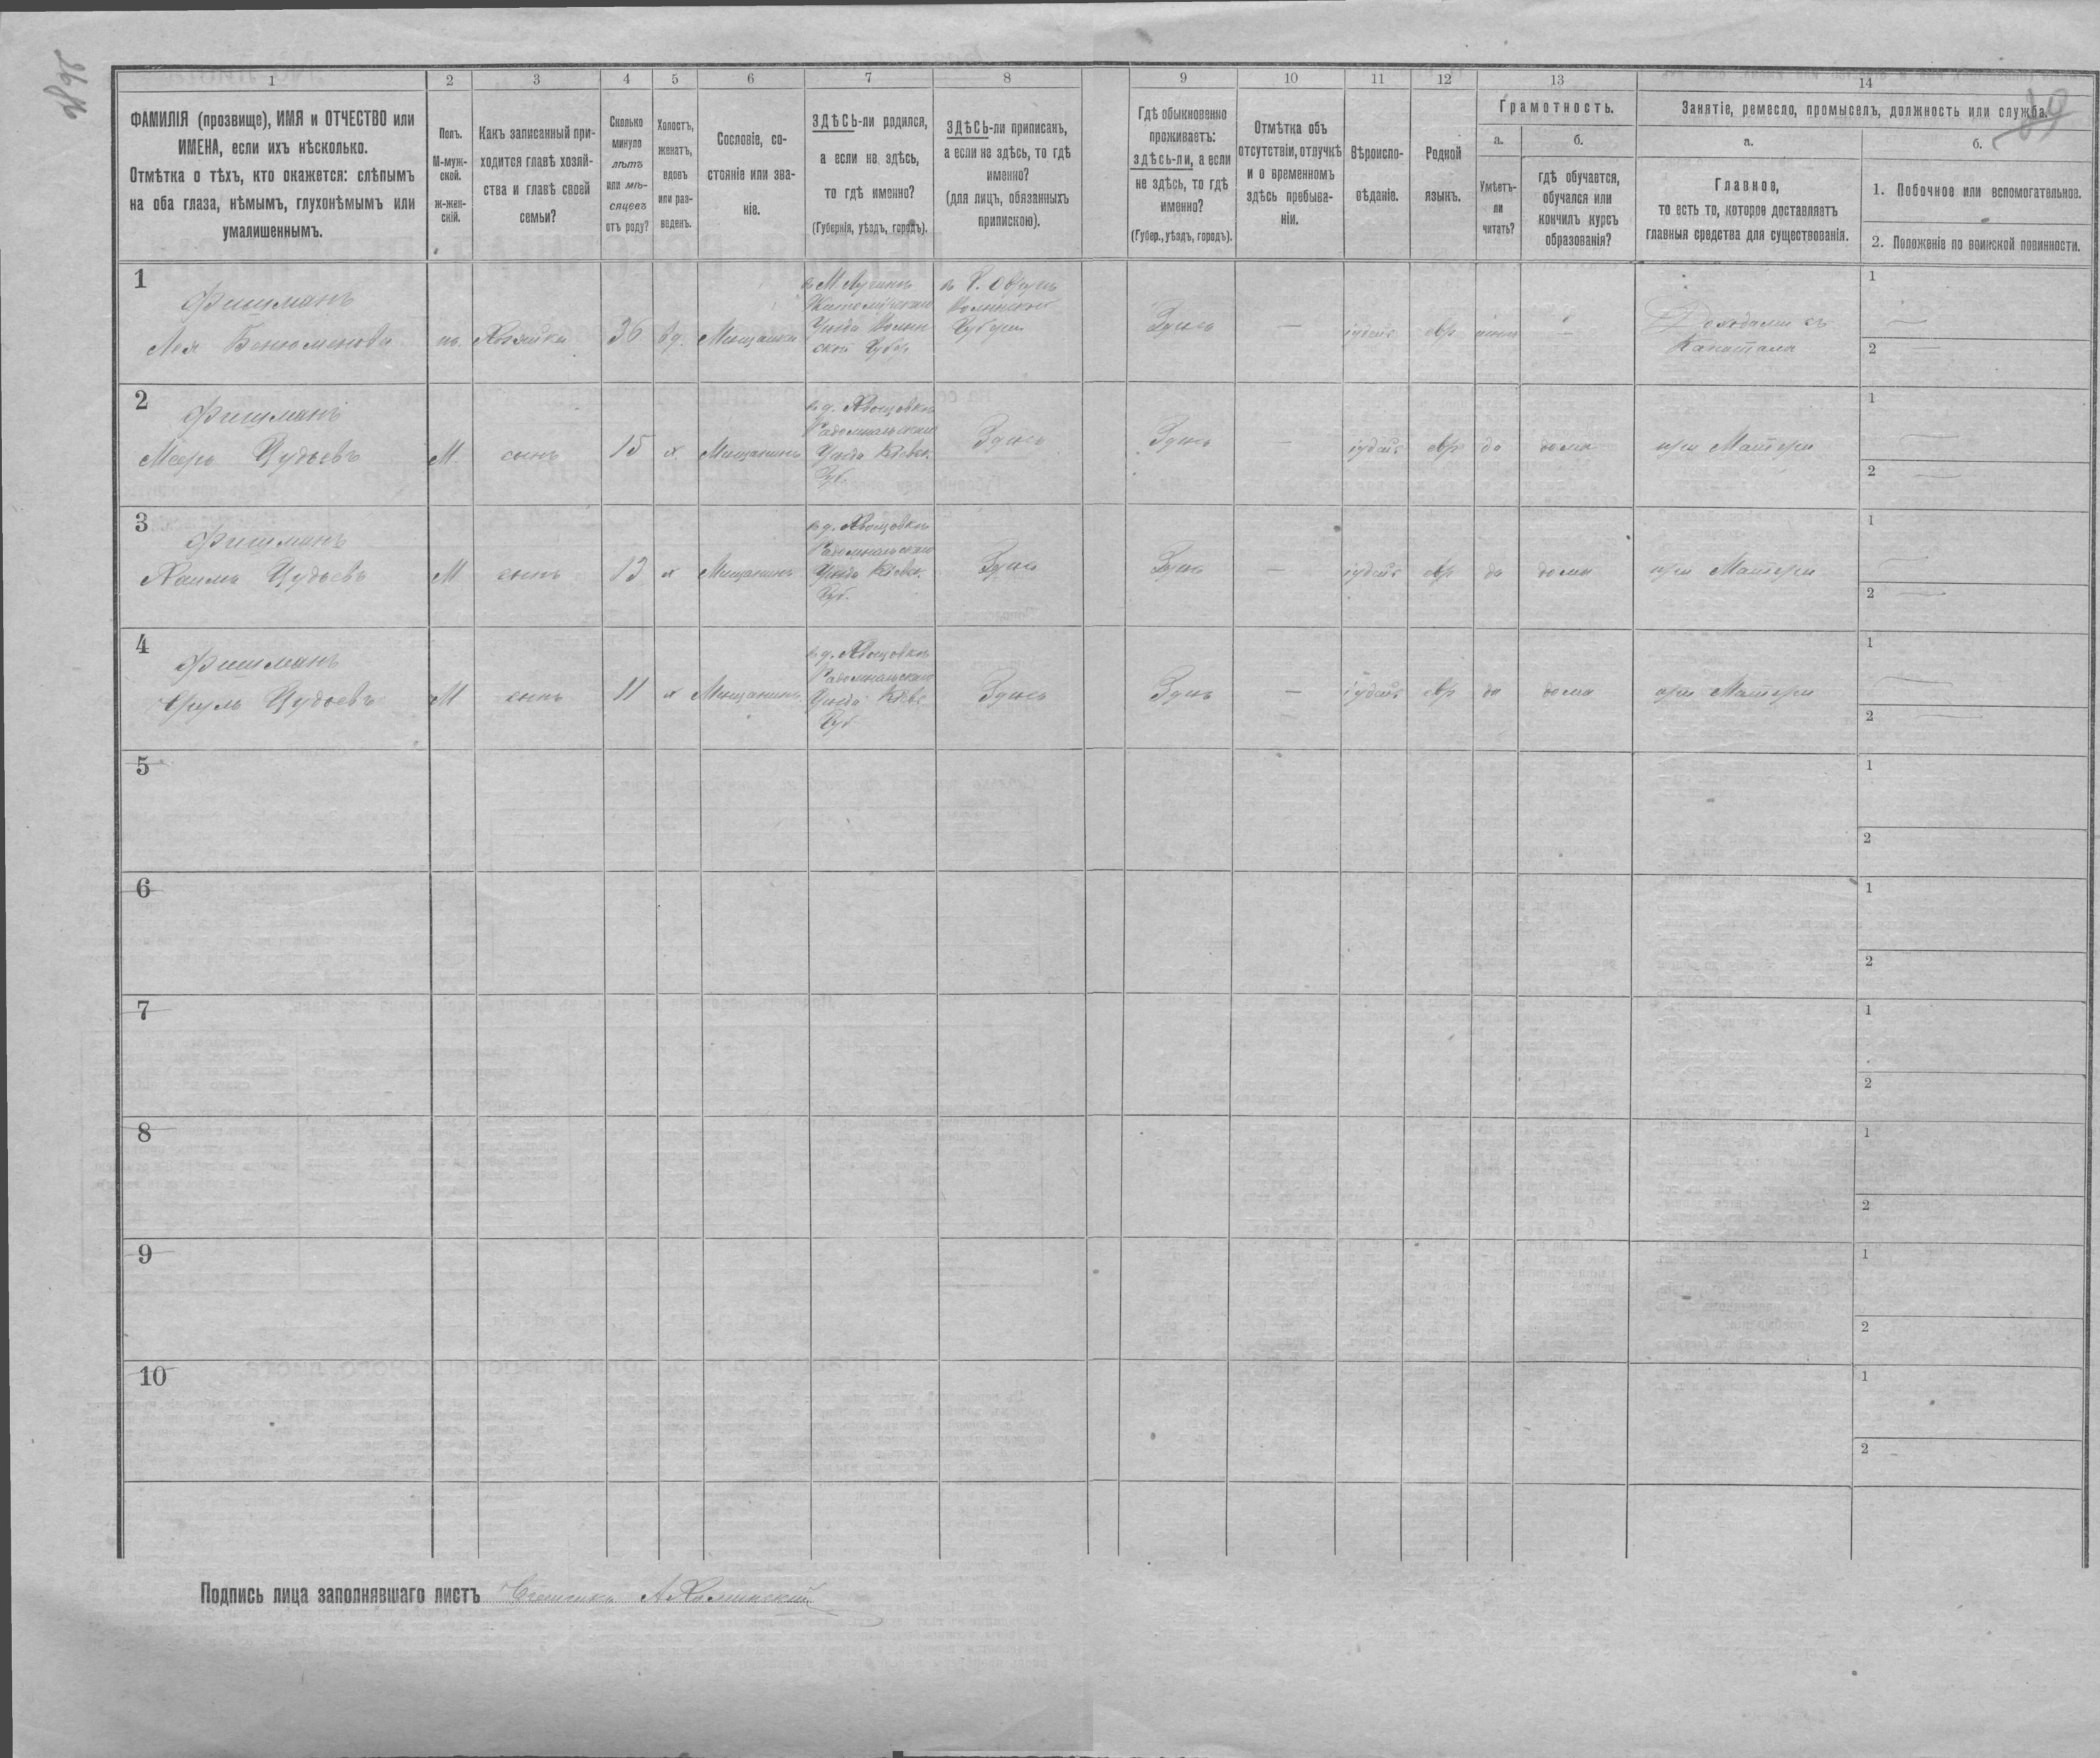 1
2
3
4
5
6
7
8
9
10
11
12
13
14
ФАМИЛІЯ (прозвище), ИМЯ и ОТЧЕСТВО или
ИМЕНА, если ихъ нѣсколько.
Отмѣтка о тѣхъ, кто окажется: слѣпымъ
на оба глаза, нѣмымъ, глухонѣмымъ или
умалишеннымъ.
Полъ.
М-муж-
ской.
ж-жен-
скій.
Какъ записанный при-
ходится главѣ хозяй-
ства и главѣ своей
семьи?
Сколько
минуло
лѣтъ
или мѣ-
сяцевъ
отъ роду?
Холостъ,
женатъ,
вдовъ
или раз-
веденъ.
Сословіе, со-
стояніе или зва-
ніе.
ЗДѢСЬ-ли родился,
а если не здѣсь,
то гдѣ именно?
(Губернія, уѣздъ, городъ).
ЗДѢСЬ-ли приписанъ,
а если не здѣсь, то гдѣ
именно?
(для лицъ, обязанныхъ
припискою).
Гдѣ обыкновенно
проживаетъ:
здѣсь-ли, а если
не здѣсь, то гдѣ
именно?
(Губер., уѣздъ, городъ).
Отмѣтка объ
отсутствіи, отлучкѣ
и о временномъ
здѣсь пребыва-
ніи.
Вѣроиспо-
вѣданіе.
Родной
языкъ.
Грамотность.
а.
Умѣетъ-
ли
читать?
б.
гдѣ обучается,
обучался или
кончилъ курсъ
образованія?
Занятіе, ремесло, промыселъ, должность или служба.
а.
Главное,
то есть то, которое доставляетъ
главныя средства для существованія.
б.
1. Побочное или вспомогательное.
2. Положеніе по воинской повинности.
1
Фишманъ
Лея Бенюменова
Хозяйка
36
вд.
Мещанка
Уѣзда Волын
ской Губ.
Волынской
Губерн
Здѣсь
—
іудейс
евр
Доходами съ
Капитала
1 —
2 —
2
Фишманъ
Мееръ Цудьевъ
М
сынъ
15
х.
Мещанинъ
Радомысльскаго
Уѣзда Кіевск.
Губ.
Здѣсь
Здѣсь
—
іудейс
евр
да
дома
при Матери
1 —
2 —
3
Фишманъ
Хаимъ Цудьевъ
М
сынъ
13
х
Мещанинъ
Радомысльскаго
Уѣзда Кіевск.
Губ.
Здѣсь
Здѣсь
—
іудейс
евр
да
дома
при Матери
1 —
2 —
4
Фишманъ
Сруль Цудьевъ
М
сынъ
11
х
Мещанинъ
Радомысльскаго
Уѣзда Кіевс
Губ
Здѣсь
Здѣсь
—
іудейс
евр
да
дома
при Матери
1 —
2 —
5
1
2
6
1
2
7
1
2
8
1
2
9
1
2
10
1
2
Подпись лица заполнявшаго листъ Счетчикъ А